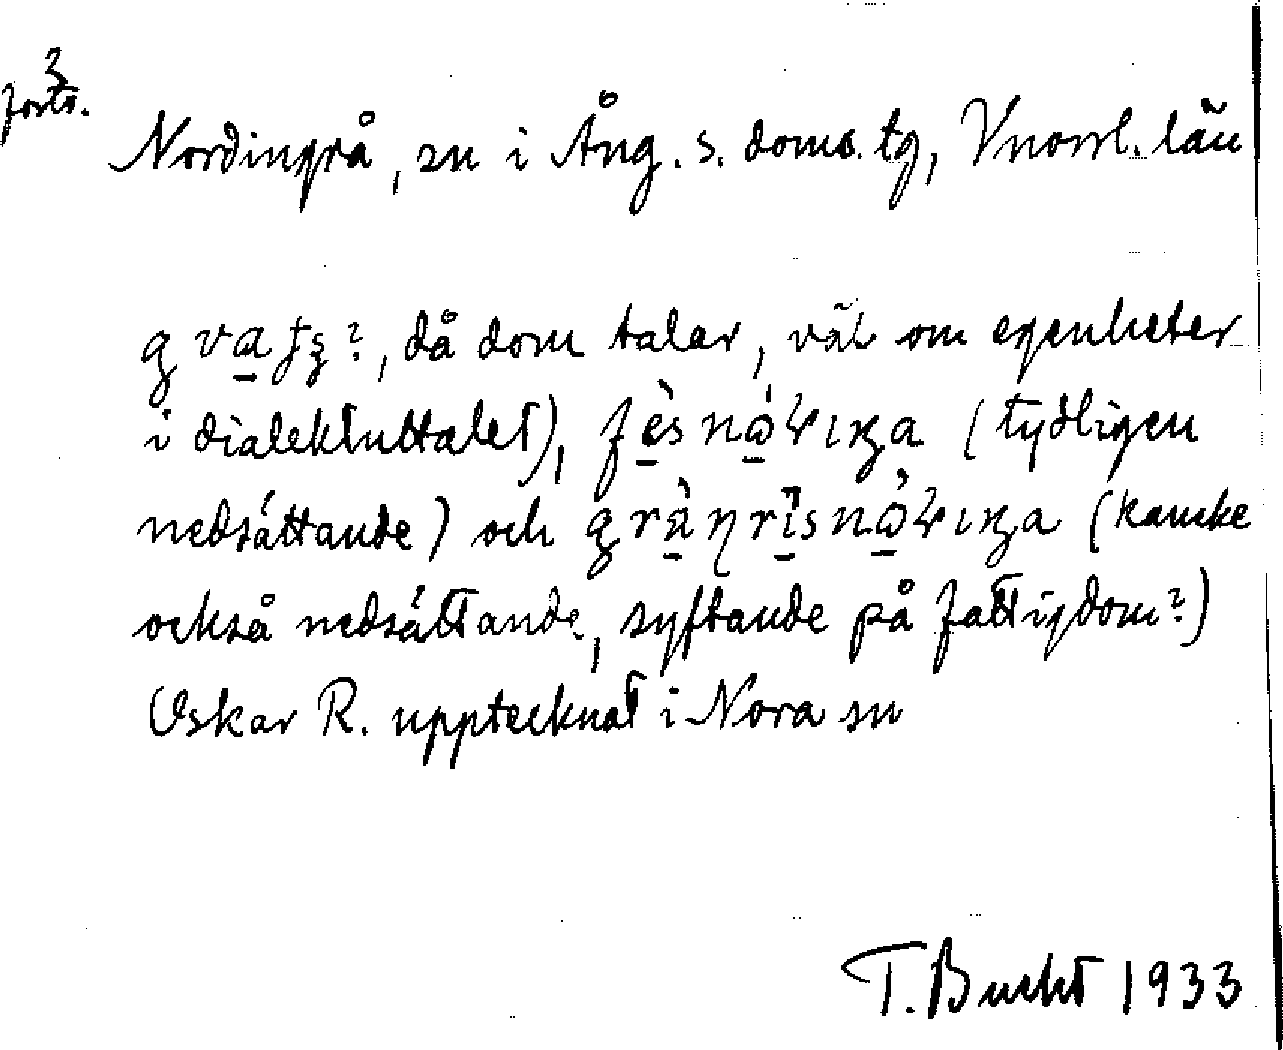 3
forts.
Nordingrå, sn i Ång. s. doms. tg, Vnorrl. län
då dom talar, väl om egenheter
i dialektuttalet), (tydligen
nedsättande) och (kanske
också nedsättande, syftande på fattigdom?)
Oskar R. upptecknat i Nora sn
T. Bucht 1933